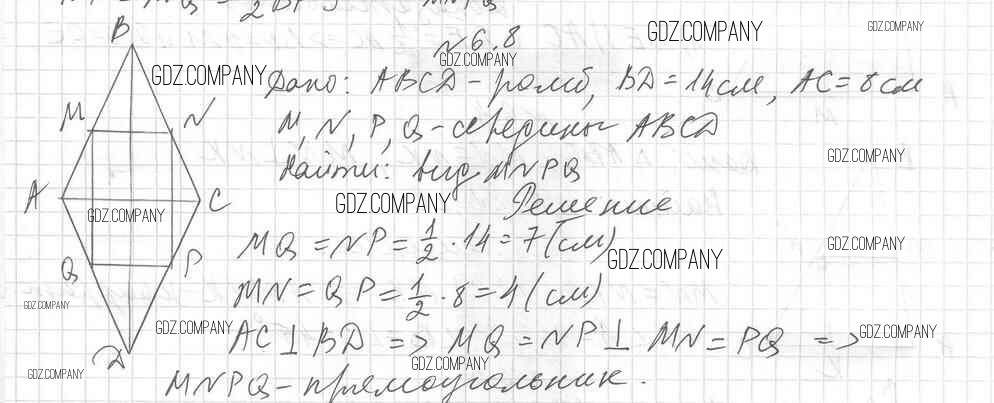 = MQ = 1/2 BD
MNPQ
№ 6.8
B
Дано: ABCD - ромб, BD = 14 см, AC = 8 см
M
N
M, N, P, Q - середины ABCD
Найти: вид MNPQ
A
C
Решение
MQ = NP = 1/2 · 14 = 7 (см)
Q
P
MN = QP = 1/2 · 8 = 4 (см)
AC ⊥ BD => MQ = NP ⊥ MN = PQ =>
D
MNPQ - прямоугольник.
GDZ.COMPANY
GDZ.COMPANY
GDZ.COMPANY
GDZ.COMPANY
GDZ.COMPANY
GDZ.COMPANY
GDZ.COMPANY
GDZ.COMPANY
GDZ.COMPANY
GDZ.COMPANY
GDZ.COMPANY
GDZ.COMPANY
GDZ.COMPANY
GDZ.COMPANY